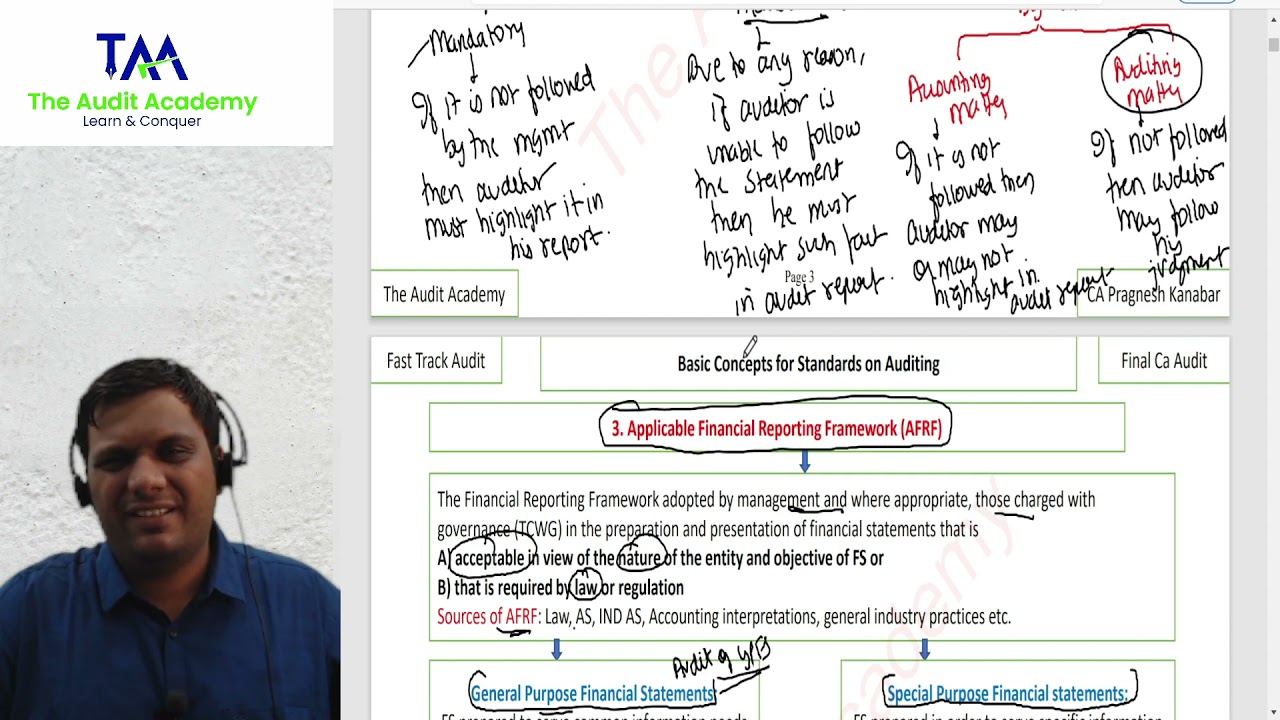 TAA
The Audit Academy
Learn & Conquer
Mandatory
If it is not followed
by the mgmt
then auditor
must highlight it in
his report.
Due to any reason,
if auditor is
unable to follow
the statement
then he must
highlight such fact
in audit report.
Accounting
matter
If it is not
followed then
auditor may
or may not
highlight in
audit report
Auditing
matter
If not followed
then auditor
may follow
his
judgment
Page 3
The Audit Academy
CA Pragnesh Kanabar
Fast Track Audit
Basic Concepts for Standards on Auditing
Final Ca Audit
3. Applicable Financial Reporting Framework (AFRF)
The Financial Reporting Framework adopted by management and where appropriate, those charged with
governance (TCWG) in the preparation and presentation of financial statements that is
A) acceptable in view of the nature of the entity and objective of FS or
B) that is required by law or regulation
Sources of AFRF: Law, AS, IND AS, Accounting interpretations, general industry practices etc.
Audit of GPFS
General Purpose Financial Statements:
Special Purpose Financial statements:
FS prepared to serve common information needs
FS prepared in order to serve specific information